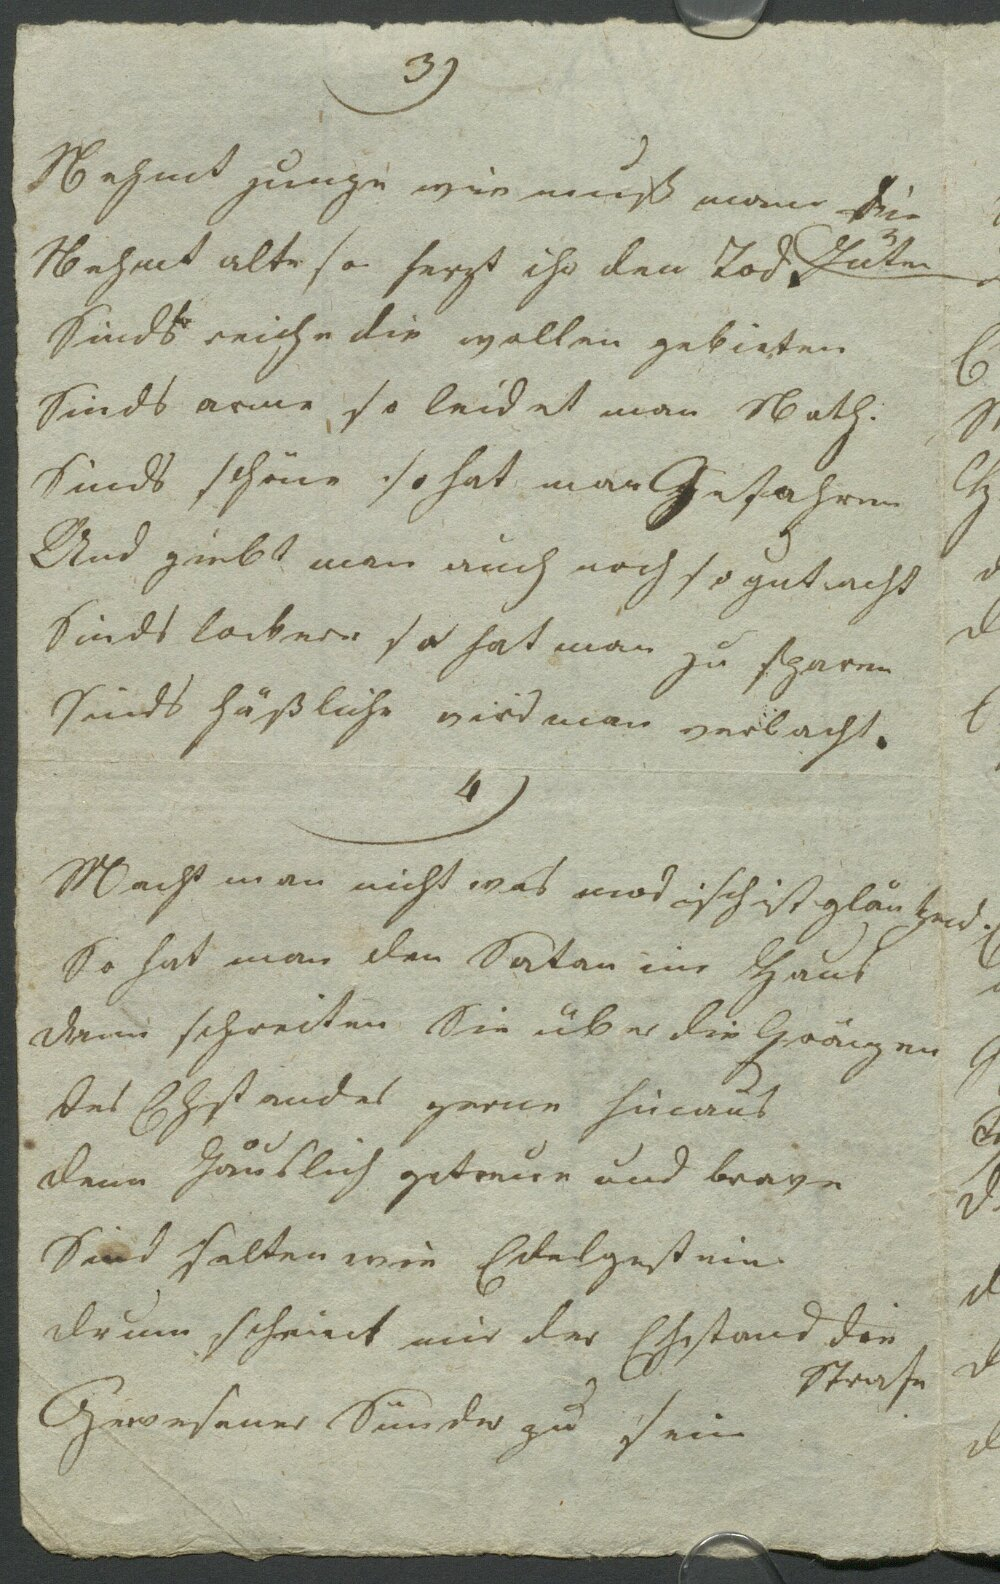 3)
Nehmt junge wie muß man die
Hüten
Nehmt alte so herzt ihr den Tod.
Sinds reiche die wollen gebieten
Sinds arme so leidet man Noth.
Sinds schöne so hat man Gefahren
Und giebt man auch noch so gut acht
Sinds lockere so hat man zu sparen
Sinds häßliche wird man verlacht.
4)
Macht man nicht was modisch ist gläntzend.
So hat man den Satan im Haus
dann schreiten Sie über die Gränzen
des Ehstandes gerne hinaus
denn häuslich getreue und brave
Sind selten wie Edelgestein
drum scheint mir der Ehstand die
Strafe
Gewesener Sünder zu sein